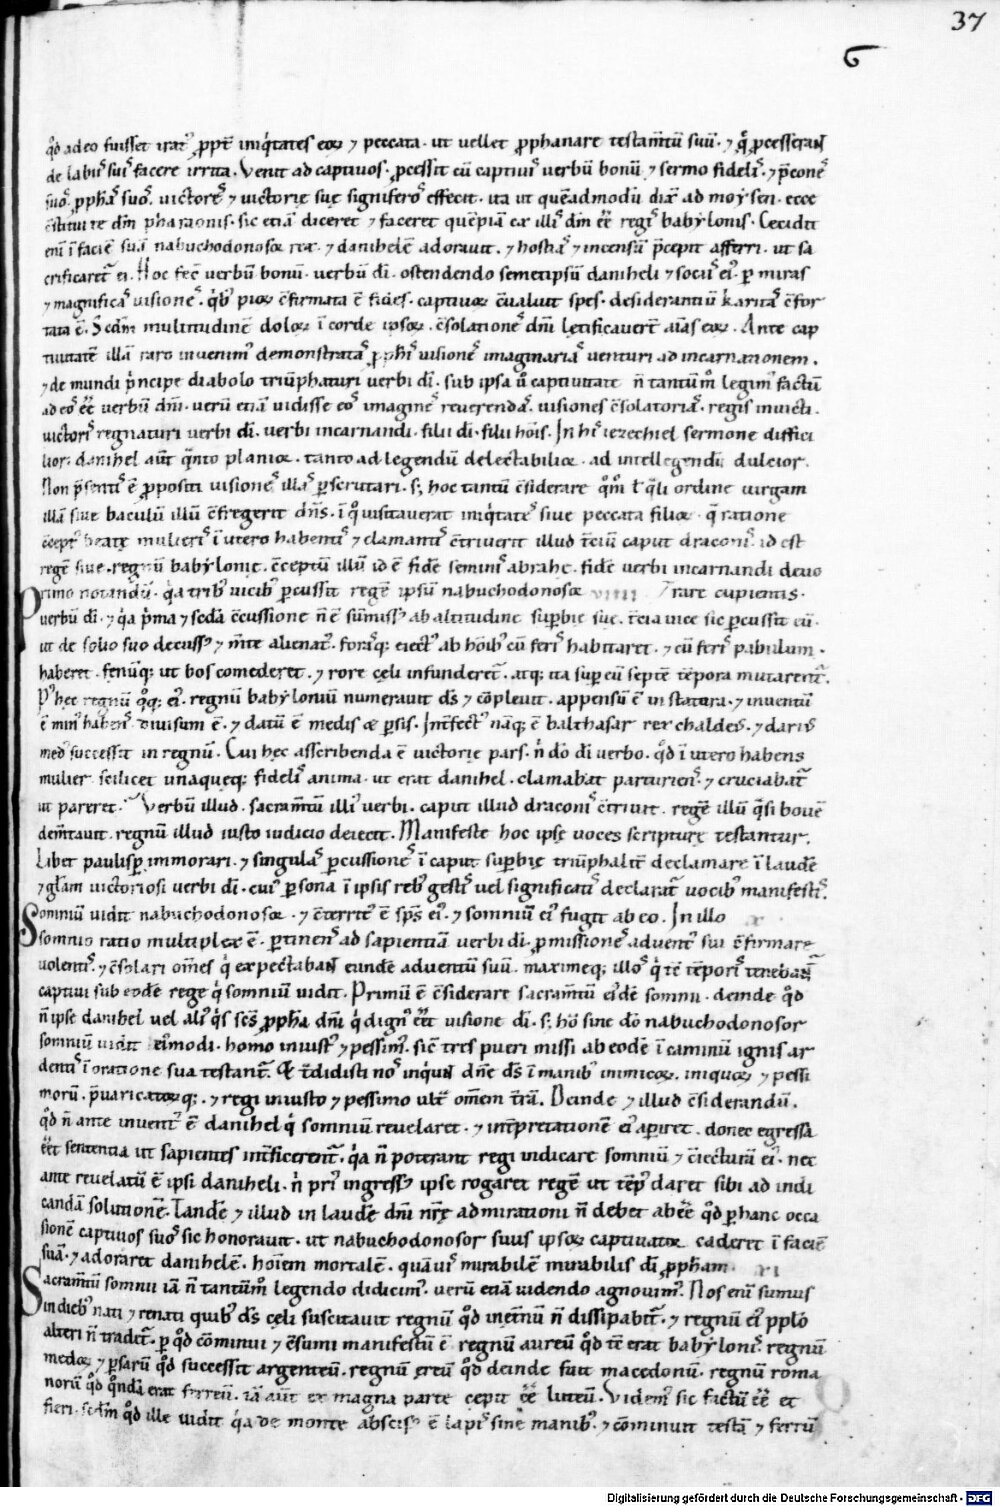 37
6
qd̄ adeo fuisset irat᷒ ꝓpt̄ iniq̇tates eoꝝ ⁊ peccata · ut uellet ꝓphanare testam̄tū suū · ⁊ q̨̄ ꝓcesserant
de labiis suis facere irrita . Venit ad captiuos . ꝓcessit cū captiuis uerbū bonū ⁊ sermo fidelis . ⁊ p̄cones
suos . ꝓph̄as suos . uictores ⁊ uictorię suę signiferos effecit . ita ut quēadmodū dix̄ ad moẏsen . ecce
c̄stitui te dm̄ pharaonis . sic etiā diceret ⁊ faceret quēpiā ex illis dm̄ ēē regis babẏlonis . Cecidit
enī ī faciē suā nabuchodonosor rex . ⁊ danihelē adorauit . ⁊ hostias ⁊ incensū p̄cepit afferri . ut sa
crificaret̄ ei . Hoc fec̄ uerbū bonū . uerbū dī . ostendendo semetipsū daniheli ⁊ sociis ei᷒ . ꝑ miras
⁊ magnificas uisiones . q̇b᷒ pioꝝ c̄firmata ē fides . captiuoꝝ c̄ualuit spes . desiderantiū karitas c̄for
tata ē . Sedm̄ multitudinē doloꝝ ī corde ipsoꝝ . c̄solationes dn̄i lętificauer̄t aīas eoꝝ . Ante cap
tiuitatē illā raro inuenim᷒ demonstratas ꝓph̄is uisiones imaginarias uenturi ad incarnationem .
⁊ de mundi ṗncipe diabolo triūphaturi uerbi dī . sub ipsa ů captiuitate n̄ tantūm̊ legim᷒ factū
ad eos ēē uerbū dn̄i . uerū etiā uidisse eos imagines reuerendas . uisiones c̄solatorias . regis inuicti .
uictoris regnaturi uerbi dī . uerbi incarnandi . filii dī . filii hōis . In his iezechiel sermone diffici
lior . danihel aūt q̄nto planior . tanto ad legendū delectabilior . ad intellegendū dulcior .
Non p̄sentis ē ꝓpositi uisiones illas ꝑscrutari . s; hoc tantū c̄siderare q̊m̊ ł q̄li ordine uirgam
illā siue baculū illū c̄fregerit dn̄s . ī q̊ uisitauerat iniq̇tates siue peccata filioꝝ . q̄ ratione
c̄cept᷒ beatę mulieris ī utero habentis ⁊ clamantis c̄triuerit illud t̄ciū caput draconis . id est
regē siue regnū babẏlonię . c̄ceptū illū id ē fidē seminis abrahę . fidē uerbi incarnandi deuo
Primo notandū . q̇a trib᷒ uicib᷒ ꝑcussit regē ipsū nabuchodonosor VIIII rare cupientis .
uerbū dī . ⁊ q̇a ṗma ⁊ sedā ꝑcussione n̄ ē sūmiss᷒ ab altitudine supbię suę . t̄cia uice sic ꝑcussit eū .
ut de solio suo decuss᷒ ⁊ m̄te alienat᷒ . forasq; eiect᷒ ab hōib᷒ cū feris habitaret . ⁊ cū feris pabulum
haberet . fenūq; ut bos comederet . ⁊ rore cęli infunderet̄ . atq; ita sup eū septē tēpora mutarent̄ .
P᷒ hęc regnū q̊q; ei᷒ . regnū babẏloniū numerauit ds̄ ⁊ cōpleuit . appensū ē in statera . ⁊ inuentū
ē min᷒ habens . diuisum ē . ⁊ datū ē medis ⁊ ꝑsis . Int̄fect᷒ nāq; ē balthasar rex chaldeus . ⁊ dari᷒
med᷒ successit in regnū . Cui hęc asscribenda ē uictorię pars . n̄ dō dī uerbo . qd̊ ī utero habens
mulier . scilicet unaqueq; fidelis anima . ut erat danihel . clamabat parturiens . ⁊ cruciabat̄
ut pareret . Verbū illud . sacram̄tū illi᷒ uerbi . caput illud draconis c̄triuit . regē illū q̄si bouē
dem̄tauit . regnū illud iusto iudicio deiecit . Manifeste hoc ipsę uoces scripturę testantur .
Libet paulisp immorari . ⁊ singulas ꝑcussiones ī caput supbię triūphalit̄ declamare ī laudē
⁊ gl̄am uictoriosi uerbi dī . cui᷒ ꝑsona ī ipsis reb᷒ gestis uel significatis declarat̄ uocib᷒ manifestis .
Somniū uidit nabuchodonosor . ⁊ c̄territ᷒ ē sp̄s ei᷒ . ⁊ somniū ei᷒ fugit ab eo . In illo x
somnio ratio multiplex ē . ꝑtinens ad sapientiā uerbi dī . ꝓmissiones aduent᷒ sui c̄firmare
uolentis . ⁊ c̄solari om̄es q̇ expectabant eundē aduentū suū . maximeq; illos q̇ tē tēporis tenebant̄
captiui sub eodē rege q̇ somniū uidit . Primū ē c̄siderare sacram̄tū ei᷒dē somnii . deinde qd̊
n̄ ipse danihel uel ali᷒ q̇s scs̄ ꝓph̄a dn̄i q̇ dign᷒ ēēt uisione dī . s; hō sine dō nabuchodonosor
somniū uidit ei᷒modi . homo iniust᷒ ⁊ pessim᷒ . sic̄ tres pueri missi ab eodē ī caminū ignis ar
dentis ī oratione sua testant̄ . Et t̄didisti nos inq̇unt dn̄e ds̄ ī manib᷒ inimicoꝝ . iniquoꝝ ⁊ pessi
morū . p̄uaricatoꝝq; . ⁊ regi iniusto ⁊ pessimo ult̄ om̄em t̄rā . Deinde ⁊ illud c̄siderandū .
qd̊ n̄ ante inuent᷒ ē danihel q̇ somniū reuelaret . ⁊ int̄pretationē ei᷒ apiret . donec egressa
ēēt sententia ut sapientes int̄ficerent̄ . q̇a n̄ poterant regi indicare somniū ⁊ c̄iecturā ei᷒ . nec
ante reuelatū ē ipsi daniheli . n̄ pri᷒ ingress᷒ ipse rogaret regē ut tēp᷒ daret sibi ad indi
candā solutionē . Tandē ⁊ illud in laudē dn̄i nr̄i admirationi n̄ debet abēē qd̊ ꝑ hanc occa
sionē captiuos suos sic honorauit . ut nabuchodonosor suus ipsoꝝ captiuator caderet ī faciē
suā . ⁊ adoraret danihelē . hoīem mortalē . quāuis mirabilē mirabilis dī ꝓph̄am . XI
Sacram̄tū somnii iā n̄ tantūm̊ legendo didicim᷒ . uerū etiā uidendo agnouim᷒ . Nos enī sumus
in dieb᷒ nati ⁊ renati quib᷒ ds̄ cęli suscitauit regnū qd̊ inet̄nū n̄ dissipabit̄ . ⁊ regnū ei᷒ pplō
alteri n̄ tradit̄ . ꝑ qd̊ cōminui ⁊ c̄sumi manifestū ē regnū aureū qd̊ tē erat babẏlonis . regnū
medoꝝ ⁊ ꝑsarū qd̊ successit argenteū . regnū ęreū qd̊ deinde fuit macedonū . regnū roma
norū qd̊ q̊ndā erat ferreū . iā aūt ex magna parte cępit ēē luteū . Videm᷒ sic factū ēē et
fieri . sedm̄ qd̊ ille uidit q̇a de monte abscis᷒ ē lapis sine manib᷒ . ⁊ cōminuit testā ⁊ ferrū
Digitalisierung gefördert durch die Deutsche Forschungsgemeinschaft - DFG